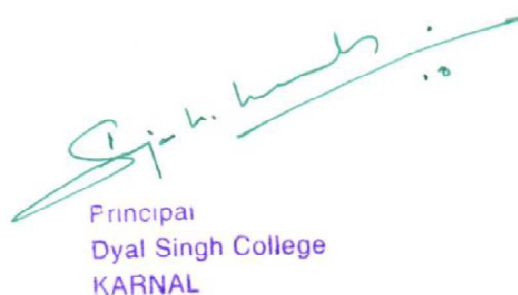 Principal
Dyal Singh College
KARNAL